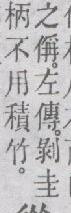 之偁。左傳。剝圭
柄不用積竹。